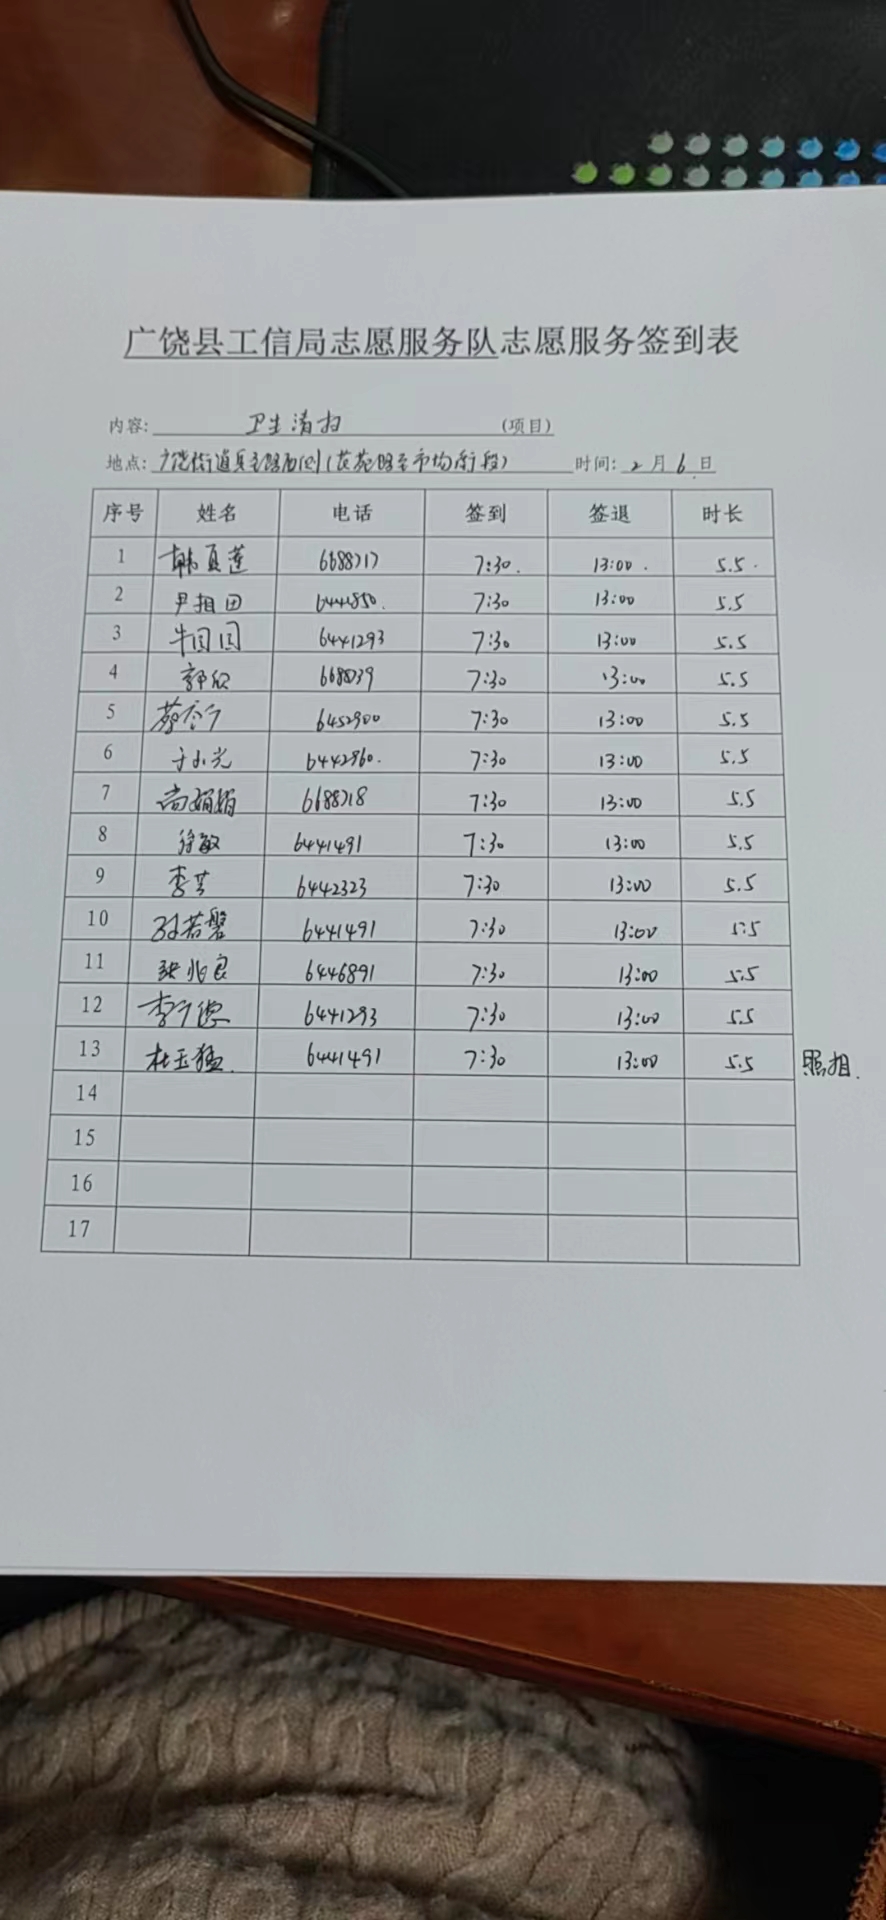 广饶县工信局志愿服务队志愿服务签到表
内容: 卫生清扫 (项目)
地点: 广饶街道 时间: 2月6日
序号 姓名 电话 签到 签退 时长
1 韩夏莲 6688717 7:30. 13:00. 5.5.
2 尹相田 7:30 13:00 5.5
3 牛囡囡 6441293 7:30 13:00 5.5
4 郭欣 7:30 13:00 5.5
5 6452900 7:30 13:00 5.5
6 于小光 6442960. 7:30 13:00 5.5
7 尚娟娟 6688718 7:30 13:00 5.5
8 徐敏 6441491 7:30 13:00 5.5
9 6442323 7:30 13:00 5.5
10 6441491 7:30 13:00 5.5
11 张兆良 6446891 7:30 13:00 5.5
12 李广德 6441293 7:30 13:00 5.5
13 杜玉猛. 6441491 7:30 13:00 5.5 照相.
14
15
16
17